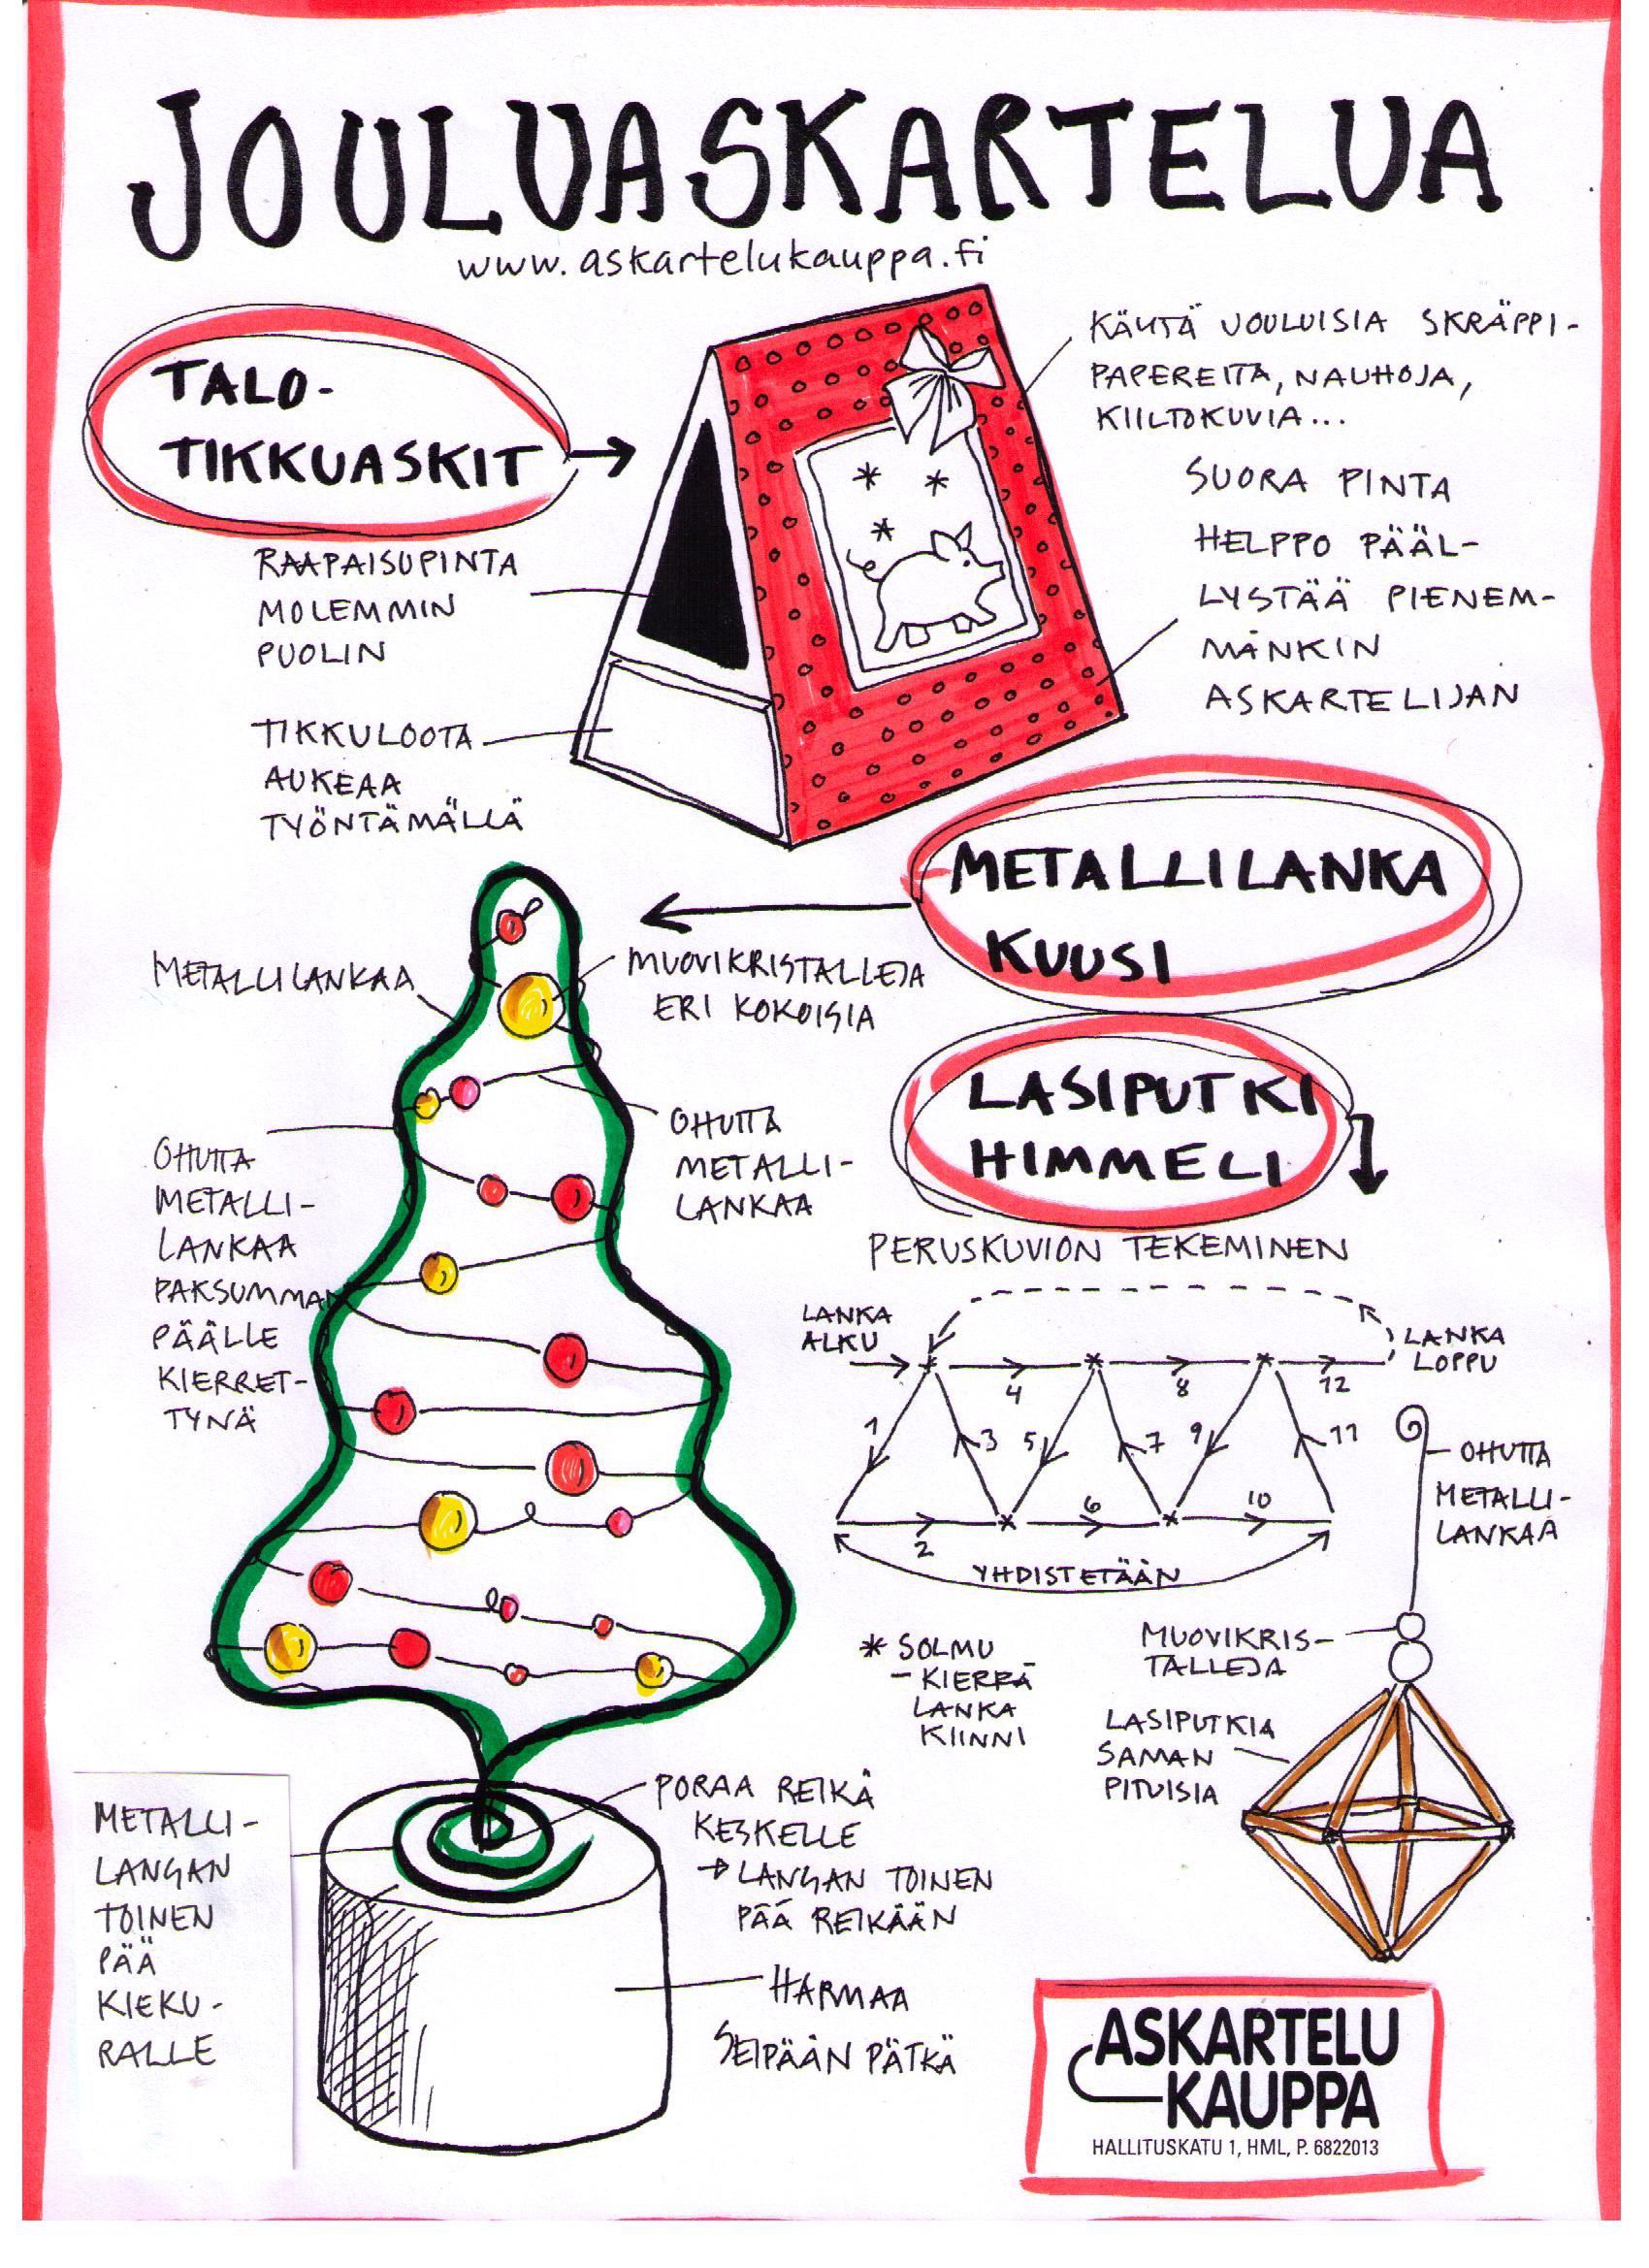 JOULUASKARTELUA
www.askartelukauppa.fi
TALO-
TIKKUASKIT
KÄYTÄ JOULUISIA SKRÄPPI-
PAPEREITA, NAUHOJA,
KIILTOKUVIA...
SUORA PINTA
HELPPO PÄÄL-
LYSTÄÄ PIENEM-
MÄNKIN
ASKARTELIJAN
RAAPAISUPINTA
MOLEMMIN
PUOLIN
TIKKULOOTA
AUKEAA
TYÖNTÄMÄLLÄ
METALLILANKA
KUUSI
METALLILANKAA
MUOVIKRISTALLEJA
ERI KOKOISIA
OHUTTA
METALLI-
LANKAA
OHUTTA
METALLI-
LANKAA
PAKSUMMAN
PÄÄLLE
KIERRET-
TYNÄ
LASIPUTKI
HIMMELI
PERUSKUVION TEKEMINEN
LANKA
ALKU
LANKA
LOPPU
4 8 12
1 3 5 7 9 11
2 6 10
YHDISTETÄÄN
OHUTTA
METALLI-
LANKAA
* SOLMU
- KIERRÄ
LANKA
KIINNI
MUOVIKRIS-
TALLEJA
LASIPUTKIA
SAMAN
PITUISIA
METALLI-
LANGAN
TOINEN
PÄÄ
KIEKU-
RALLE
PORAA REIKÄ
KESKELLE
→ LANGAN TOINEN
PÄÄ REIKÄÄN
HARMAA
SEIPÄÄN PÄTKÄ
ASKARTELU
KAUPPA
HALLITUSKATU 1, HML, P. 6822013